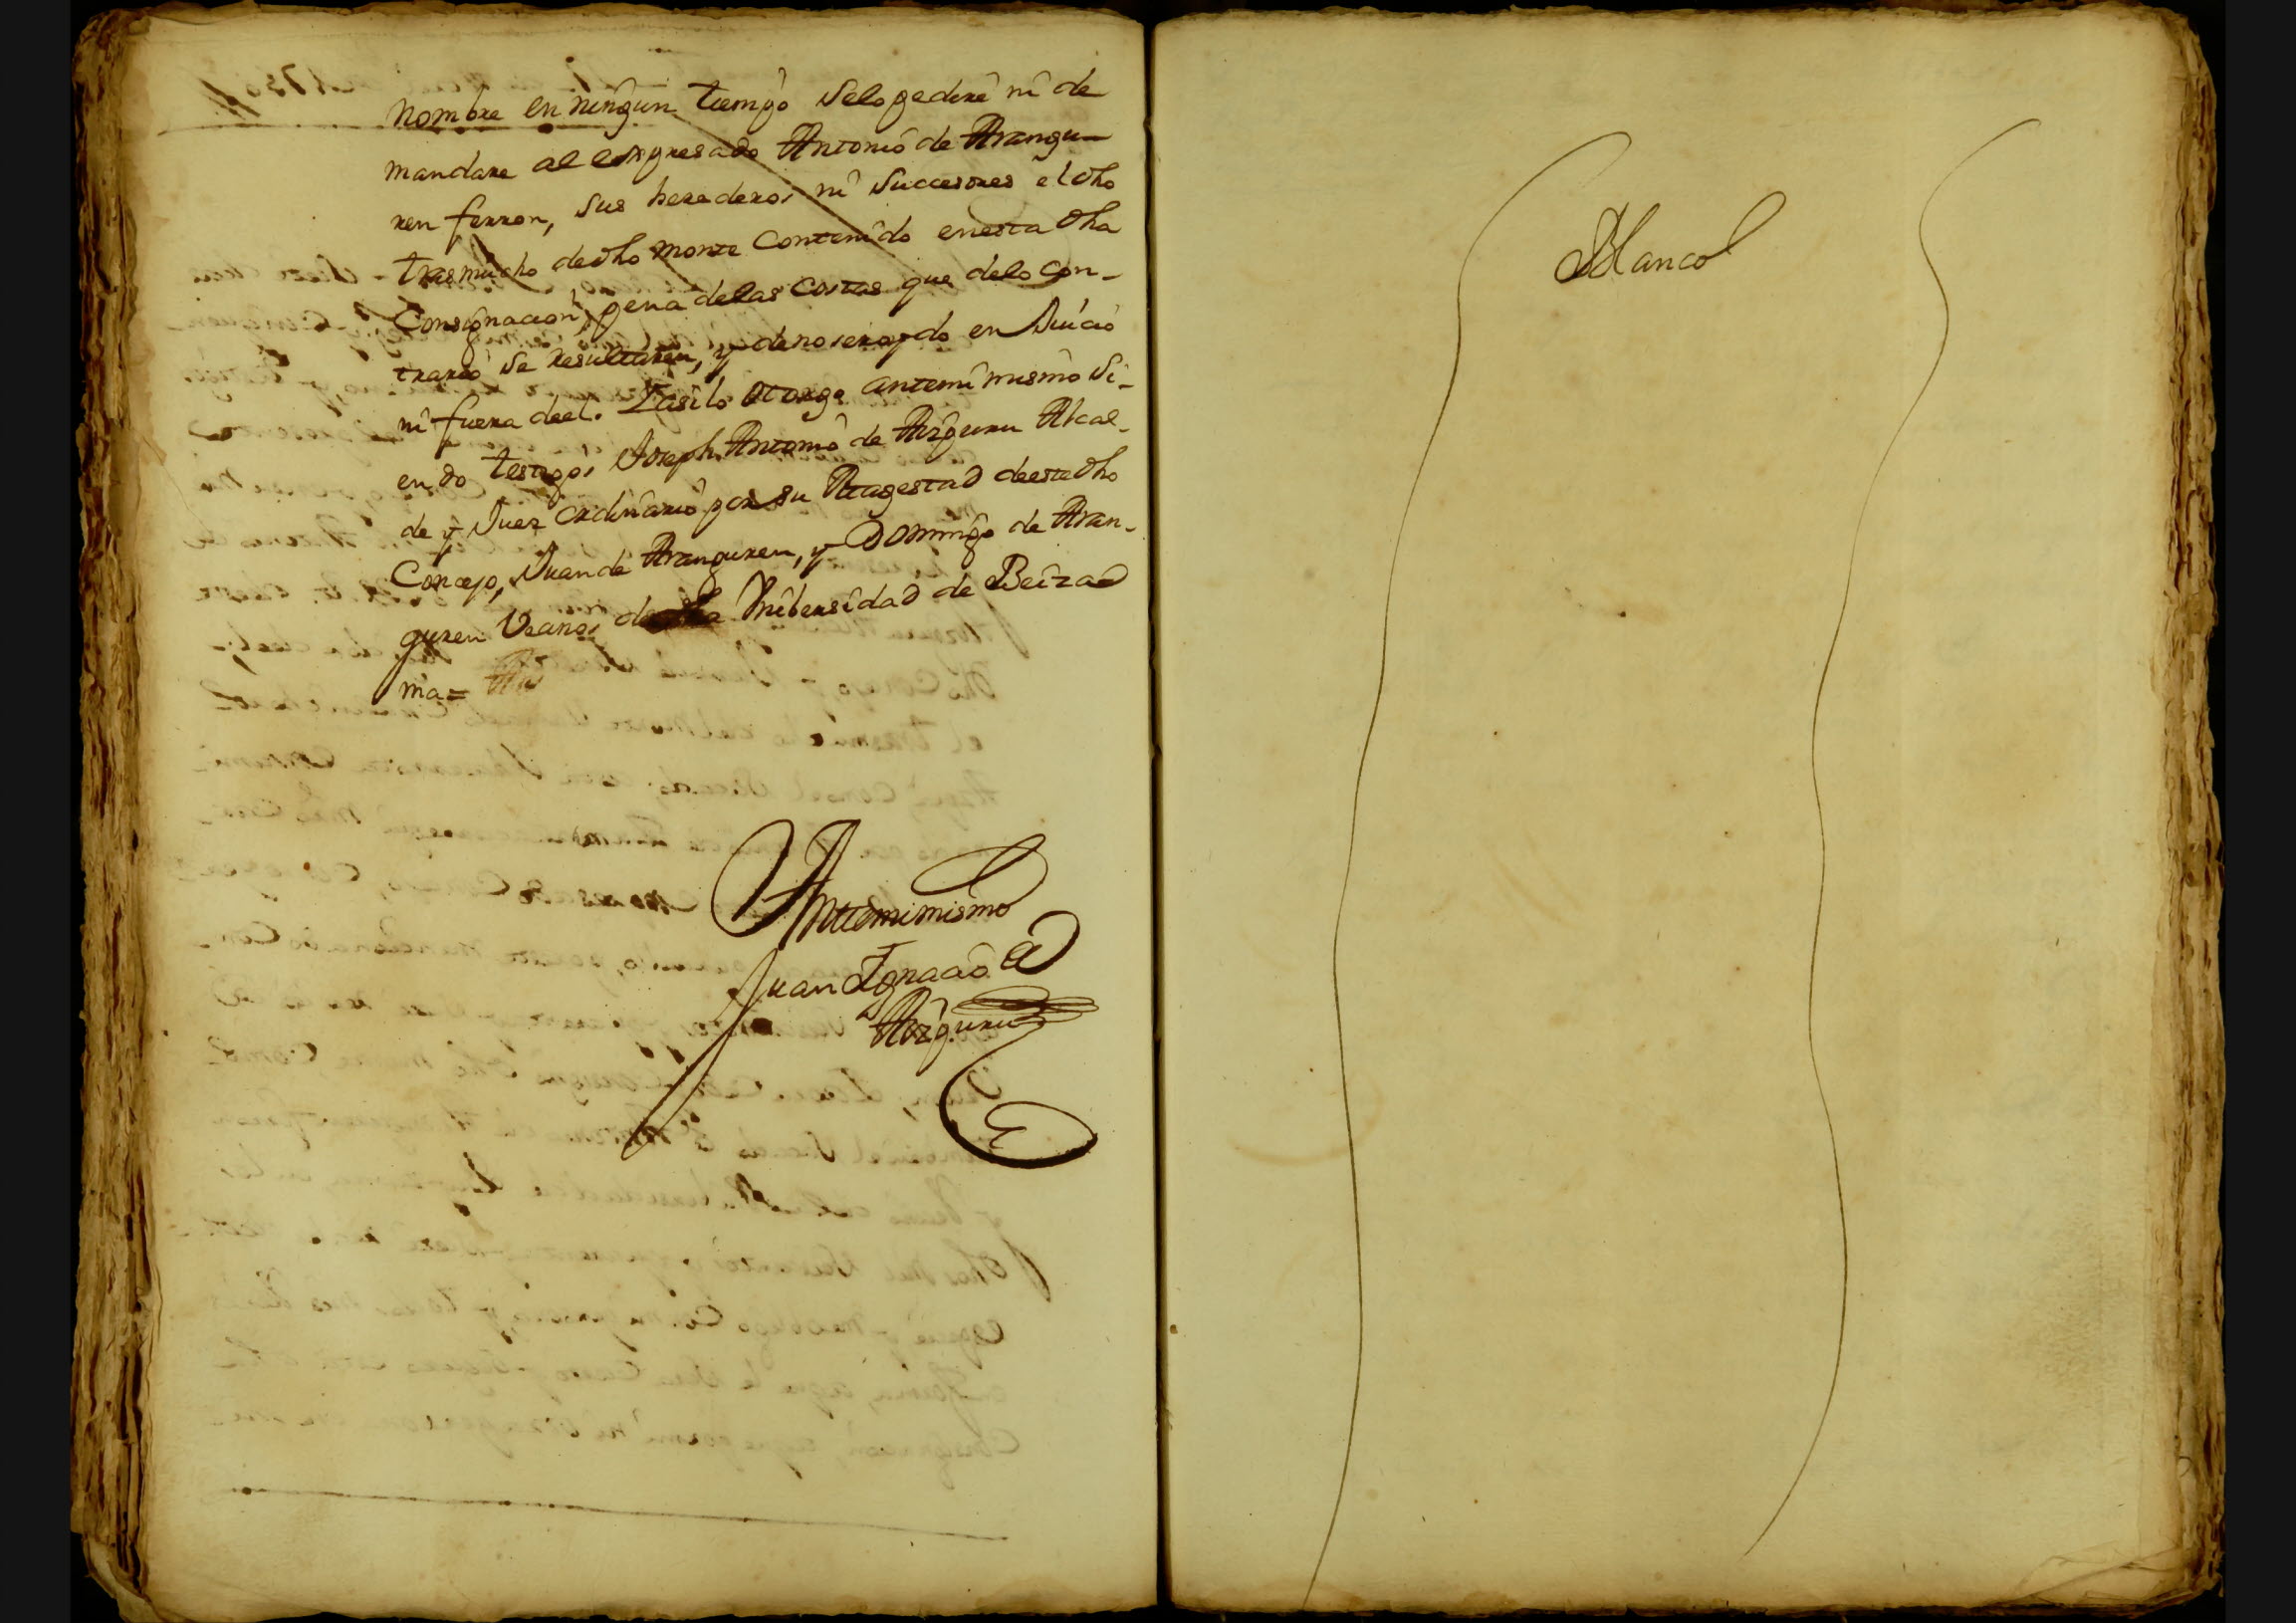 Nombre en ningun tiempo selo pedire ni de
mandare al expresado Antonio de Arangu
ren ferron, sus herederos ni Succesores el dho
trasmucho de dho monte Contenido en esta dha
Consignacion, pena delas Costas que delo con-
trario se resultaren, y de no ser oydo en Juicio
ni fuera deel. Y asi lo otorge antemi mismo Si-
endo testigos Joseph Antonio de Aizguru Alcal-
de y Juez ordinario por su Magestad deeste dho
Concejo, Juan de Aranguren, y Domingo de Aran-
guren Vecinos de dha Unibersidad de Beiza
ma=
Antemi mismo
Juan Ignacio de
Aizguru
Blanco